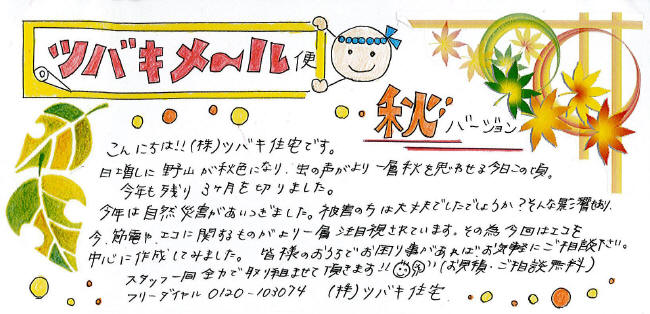 ツバキメ〜ル便
秋バージョン
こんにちは!!(株)ツバキ住宅です。
日増しに野山が秋色になり、虫の声がより一層秋を思わせる今日この頃。
今年も残り3ヶ月を切りました。
今年は自然災害があいつぎました。被害の方は大丈夫でしたでしょうか?そんな影響もあり、
今、節電や、エコに関するものがより一層注目視されています。その為今回はエコを
中心に作成してみました。皆様のおうちでお困り事があれば、お気軽にご相談下さい。
スタッフ一同全力で取り組ませて頂きます!!(お見積・ご相談無料)
フリーダイヤル 0120-103074 (株)ツバキ住宅